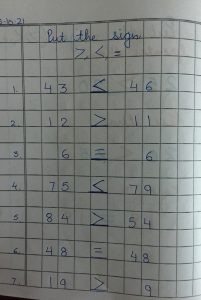 Put the sign
>, < =
1. 43 < 46
2. 12 > 11
3. 6 = 6
4. 75 < 79
5. 84 > 54
6. 48 = 48
7. 19 > 9